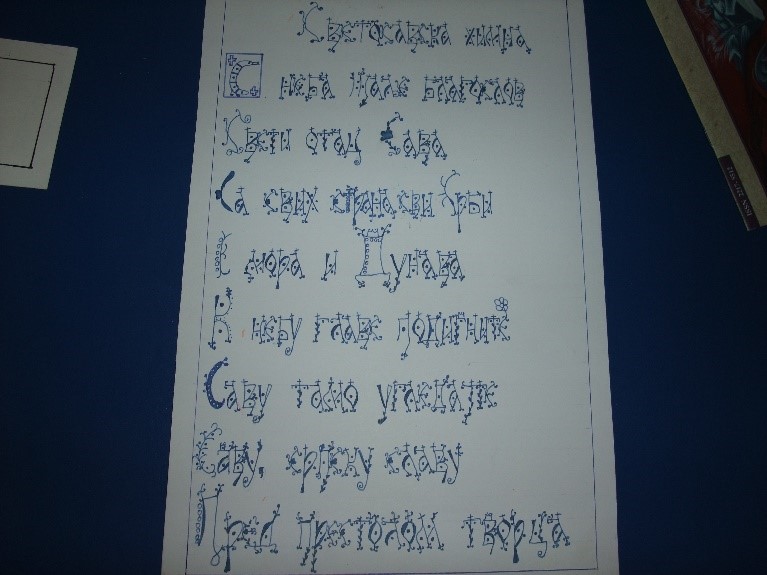 Светосавска химна
С неба шаље благослов
Свети отац Сава
Са свих страна сви Срби
С мора и Дунава
К небу главе подигните
Саву тамо угледајте
Саву, српску славу
Пред престолом творца